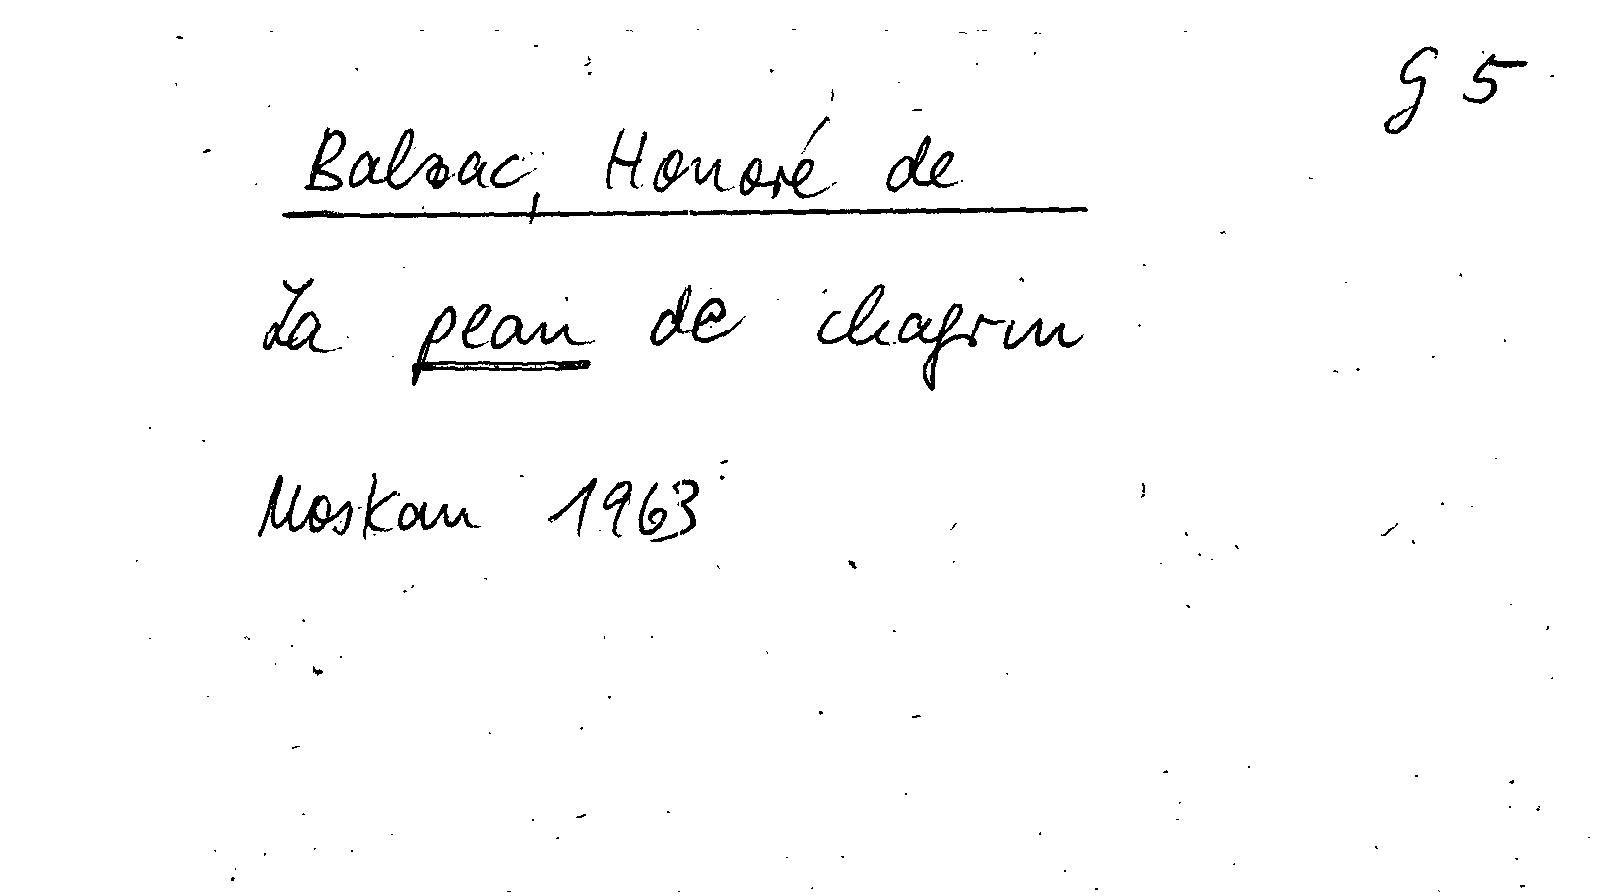 G 5
Balzac, Honoré de
La peau de chagrin
Moskau 1963